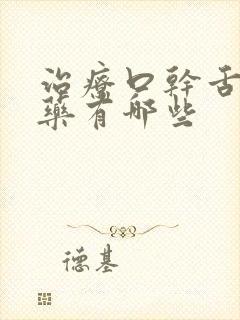 治療口幹舌
藥有哪些
德基